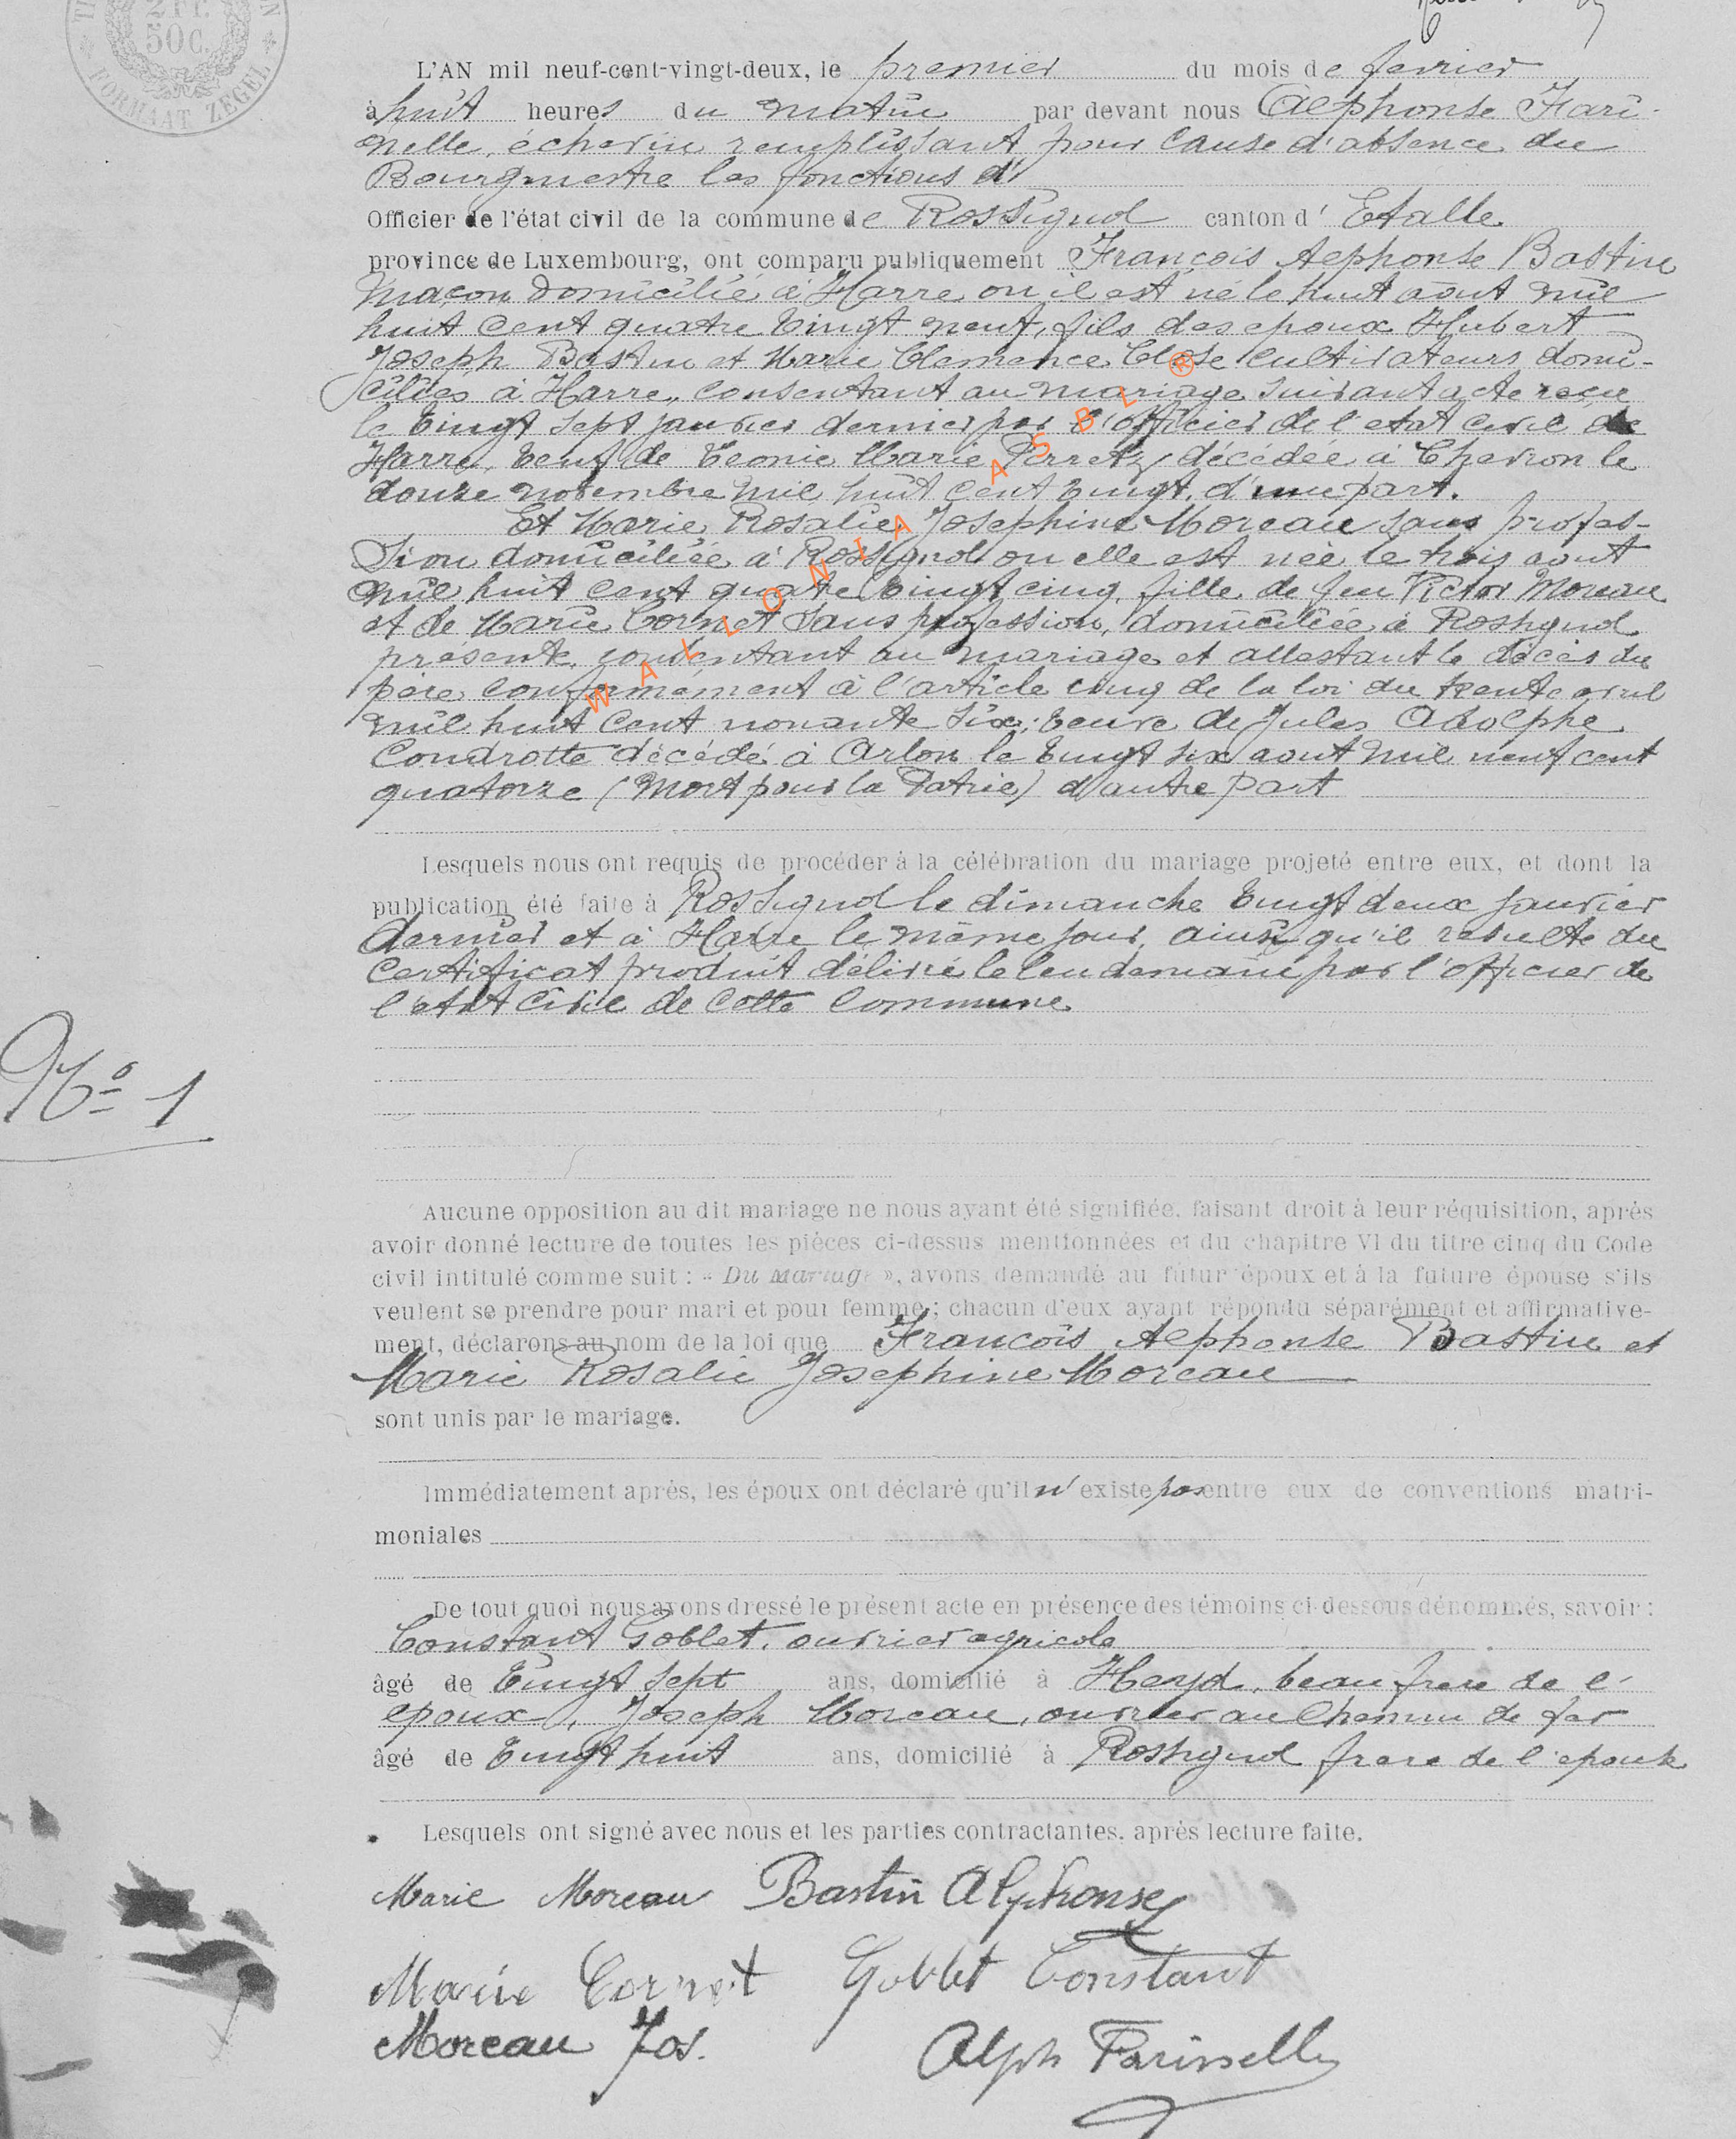 2 Fr.
50 C.
FORMAAT ZEGEL
L'AN mil neuf-cent-vingt-deux, le premier du mois de fevrier
à huit heures du matin par devant nous Alphonse Fari-
nelle, échevin remplissant pour cause d'absence du
Bourgmestre les fonctions d'
Officier de l'état civil de la commune de Rossignol canton d' Etalle
province de Luxembourg, ont comparu publiquement François Alphonse Bastin
maçon domicilié à Harre ou il est né le huit aout mil
huit cent quatre vingt neuf, fils des epoux Hubert
Joseph Bastin et Marie Clémence Close cultivateurs domi-
ciliés à Harre, consentant au mariage suivant acte reçu
le vingt sept janvier dernier par l'officier de l'etat civil de
Harre, veuf de Leonie Marie décédée à Chevron le
douze novembre mil huit cent vingt, d'une part.
Et Marie Rosalie Josephine Moreau sans profes-
sion domiciliée à Rossignol ou elle est née le trois aout
mil huit cent quatre vingt cinq, fille de feu Victor Moreau
et de Marie Cornet sans profession, domiciliée à Rossignol
présente, consentant au mariage et attestant le décès du
père conformément à l'article cinq de la loi du trente avril
mil huit cent nonante six; veuve de Jules Adolphe
Condrotte décédé à Arlon le vingt six aout mil neuf cent
quatorze (Mort pour la Patrie) d'autre part
WALLONIA ASBL ®
Lesquels nous ont requis de procéder à la célébration du mariage projeté entre eux, et dont la
publication été faite à Rossignol le dimanche vingt deux janvier
dernier et à Harre le même jour, ainsi qu'il résulte du
certificat produit délivré le lendemain par l'officier de
l'etat civil de cette commune
No 1
Aucune opposition au dit mariage ne nous ayant été signifiée, faisant droit à leur réquisition, après
avoir donné lecture de toutes les pièces ci-dessus mentionnées et du chapitre VI du titre cinq du Code
civil intitulé comme suit : « Du Mariage », avons demandé au futur époux et à la future épouse s'ils
veulent se prendre pour mari et pour femme ; chacun d'eux ayant répondu séparément et affirmative-
ment, déclarons au nom de la loi que François Alphonse Bastin et
Marie Rosalie Josephine Moreau
sont unis par le mariage.
Immédiatement après, les époux ont déclaré qu'il n'existe pas entre eux de conventions matri-
moniales
De tout quoi nous avons dressé le présent acte en présence des témoins ci-dessous dénommés, savoir :
Constant Goblet, ouvrier agricole
âgé de vingt sept ans, domicilié à Heyd, beau frere de l'
epoux, Joseph Moreau, ouvrier au chemin de fer
âgé de vingt huit ans, domicilié à Rossignol frere de l'epouse
Lesquels ont signé avec nous et les parties contractantes, après lecture faite.
Marie Moreau Bastin Alphonse
Marie Cornet Goblet Constant
Moreau Jos. Alph Farinelle